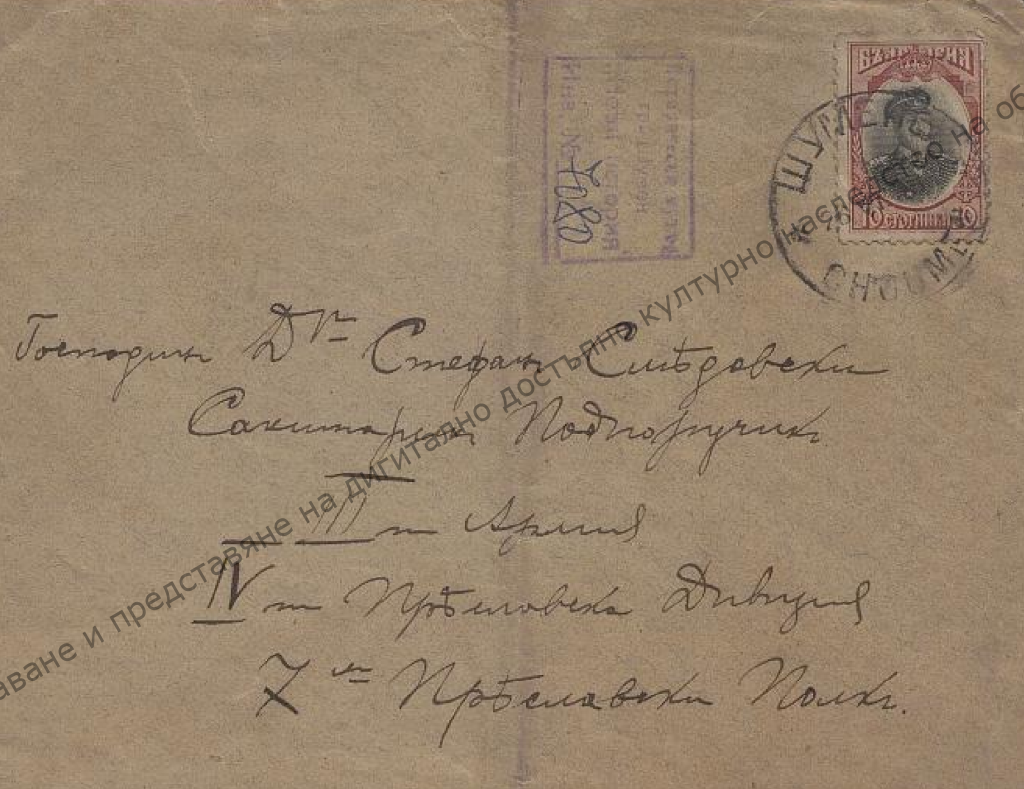 БЪЛГАРИЯ
10 СТОТИНКИ 10
ШУМЕН
CHOUMEN
4080
Господинъ Дръ Стефанъ Смѣдовски
Санитаренъ Подпоручикъ
III та Армия
IV та Прѣславска Дивизия
7ми Прѣславски Полкъ.
аване и представяне на дигитално достъпно културно наследство на об